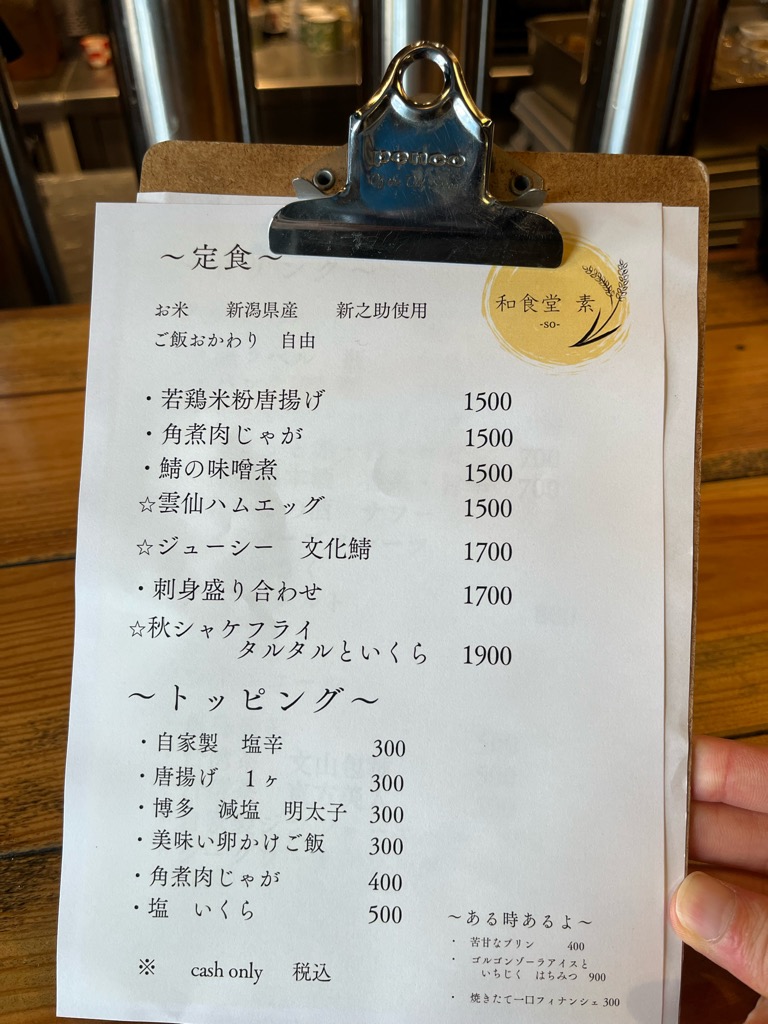 penco
～定食～
和食堂 素
-so-
お米 新潟県産 新之助使用
ご飯おかわり 自由
・若鶏米粉唐揚げ 1500
・角煮肉じゃが 1500
・鯖の味噌煮 1500
☆雲仙ハムエッグ 1500
☆ジューシー 文化鯖 1700
・刺身盛り合わせ 1700
☆秋シャケフライ
タルタルといくら 1900
～トッピング～
・自家製 塩辛 300
・唐揚げ 1ヶ 300
・博多 減塩 明太子 300
・美味い卵かけご飯 300
・角煮肉じゃが 400
・塩 いくら 500
※ cash only 税込
～ある時あるよ～
・ 苦甘なプリン 400
・ ゴルゴンゾーラアイスと
いちじく はちみつ 900
・ 焼きたて一口フィナンシェ 300